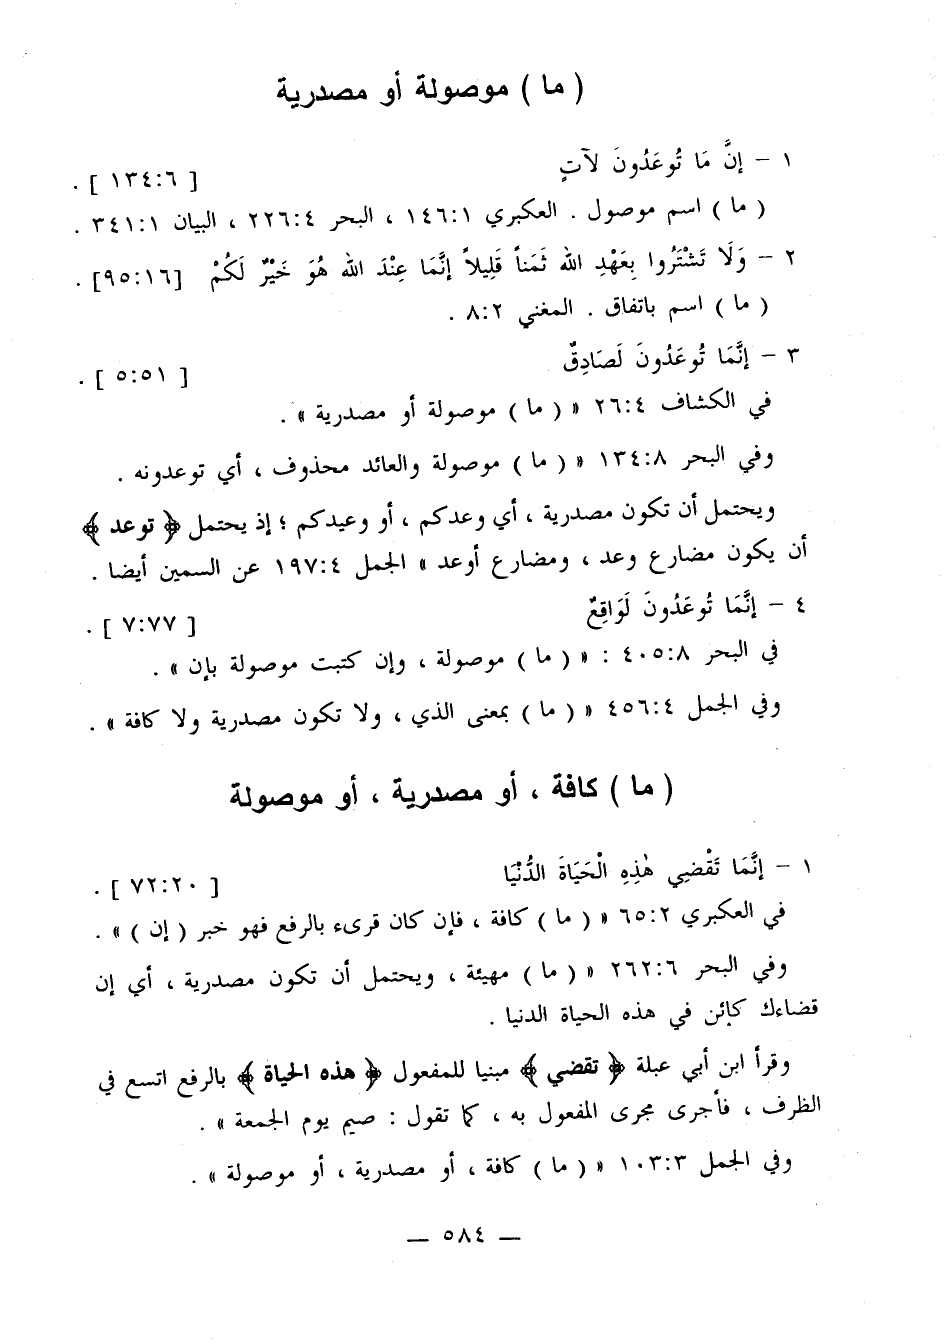 ( ما ) موصولة أو مصدرية
١ – إنَّ مَا تُوعَدُونَ لآتٍ [ ١٣٤:٦ ] .
( ما ) اسم موصول . العكبري ١٤٦:١ ، البحر ٢٢٦:٤ ، البيان ٣٤١:١ .
٢ – وَلَا تَشْتَرُوا بِعَهْدِ الله ثَمَناً قَلِيلاً إنَّمَا عِنْدَ الله هُوَ خَيْرٌ لَكُمْ [٩٥:١٦] .
( ما ) اسم باتفاق . المغني ٨:٢ .
٣ – إنَّمَا تُوعَدُونَ لَصَادِقٌ [ ٥:٥١ ] .
في الكشاف ٢٦:٤ « ( ما ) موصولة أو مصدرية » .
وفي البحر ١٣٤:٨ « ( ما ) موصولة والعائد محذوف ، أي توعدونه .
ويحتمل أن تكون مصدرية ، أي وعدكم ، أو وعيدكم ؛ إذ يحتمل ﴿ توعد ﴾
أن يكون مضارع وعد ، ومضارع أوعد » الجمل ١٩٧:٤ عن السمين أيضا .
٤ – إنَّمَا تُوعَدُونَ لَوَاقِعٌ [ ٧:٧٧ ] .
في البحر ٤٠٥:٨ : « ( ما ) موصولة ، وإن كتبت موصولة بإن » .
وفي الجمل ٤٥٦:٤ « ( ما ) بمعنى الذي ، ولا تكون مصدرية ولا كافة » .
( ما ) كافة ، أو مصدرية ، أو موصولة
١ – إنَّمَا تَقْضِي هٰذِهِ الْحَيَاةَ الدُّنْيَا [ ٧٢:٢٠ ] .
في العكبري ٦٥:٢ « ( ما ) كافة ، فإن كان قرىء بالرفع فهو خبر ( إن ) » .
وفي البحر ٢٦٢:٦ « ( ما ) مهيئة ، ويحتمل أن تكون مصدرية ، أي إن
قضاءك كائن في هذه الحياة الدنيا .
وقرأ ابن أبي عبلة ﴿ تقضي ﴾ مبنيا للمفعول ﴿ هذه الحياة ﴾ بالرفع اتسع في
الظرف ، فأجرى مجرى المفعول به ، كما تقول : صيم يوم الجمعة » .
وفي الجمل ١٠٣:٣ « ( ما ) كافة ، أو مصدرية ، أو موصولة » .
— ٥٨٤ —